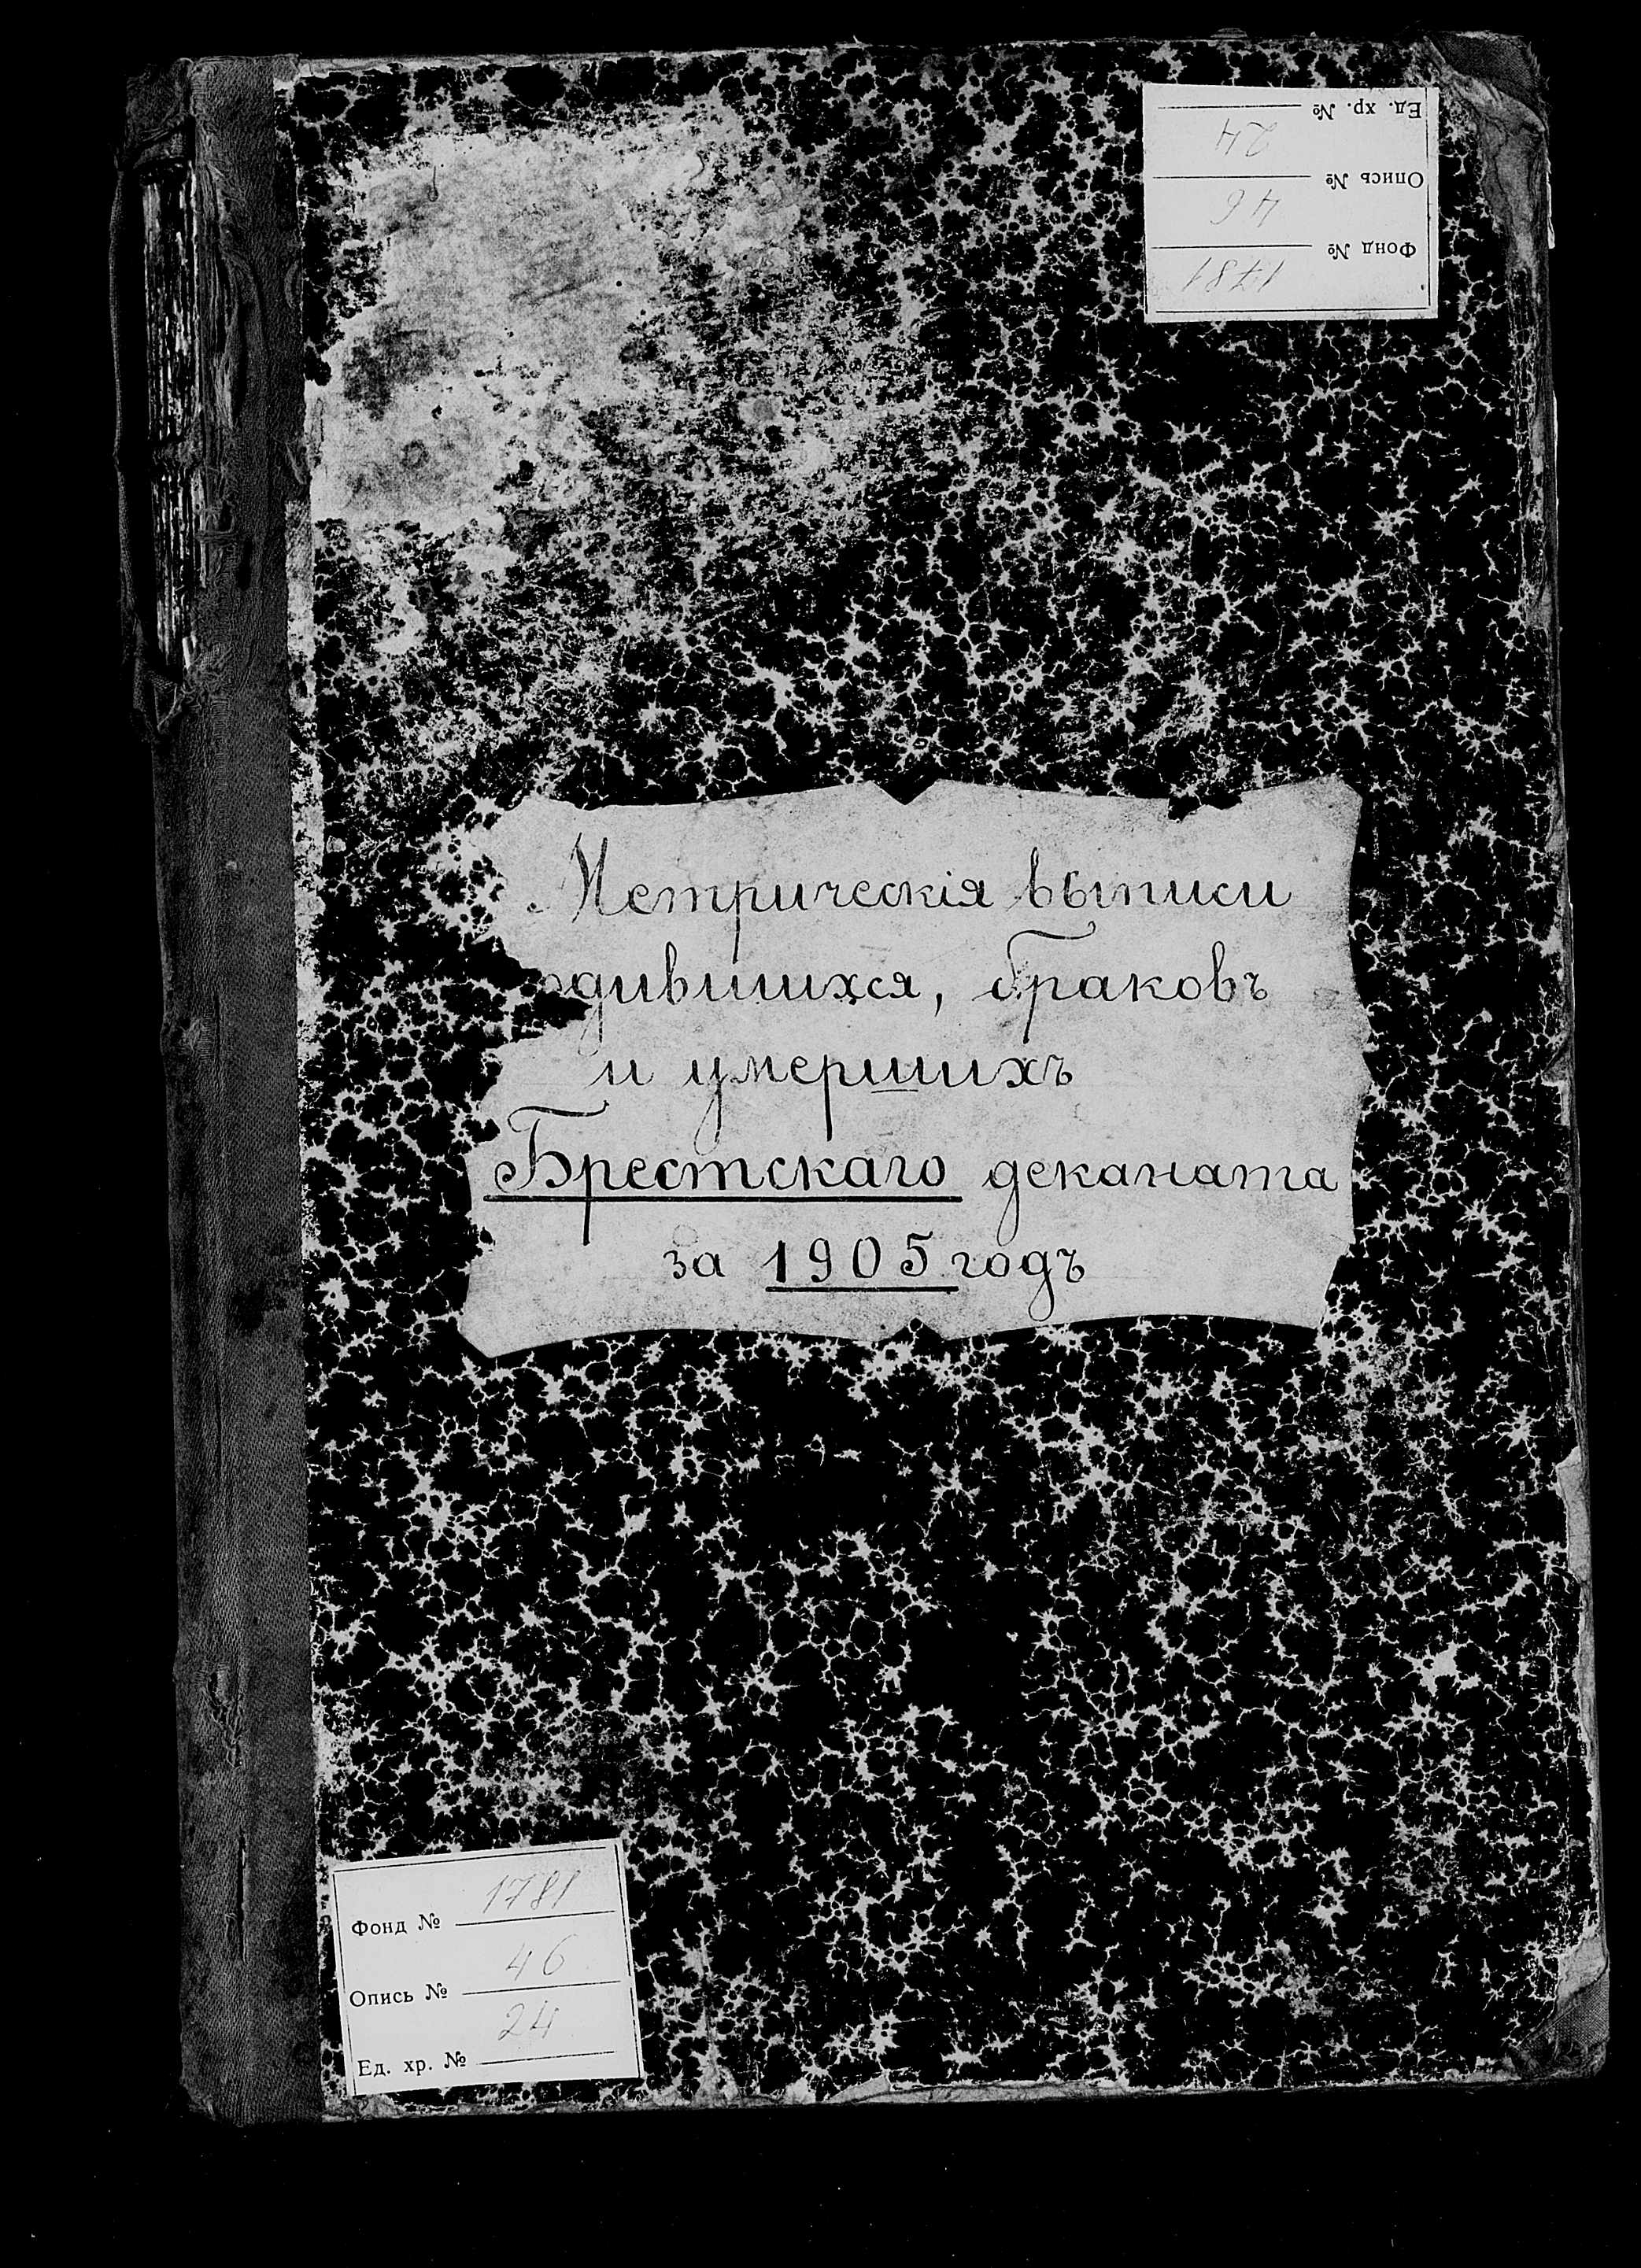 Ед. хр. №
24
Опись №
46
Фонд №
1781
Метрическія выписи
одившихся, браковъ
и умершихъ
Брестскаго деканата
за 1905 годъ
1781
Фонд №
46
Опись №
24
Ед. хр. №